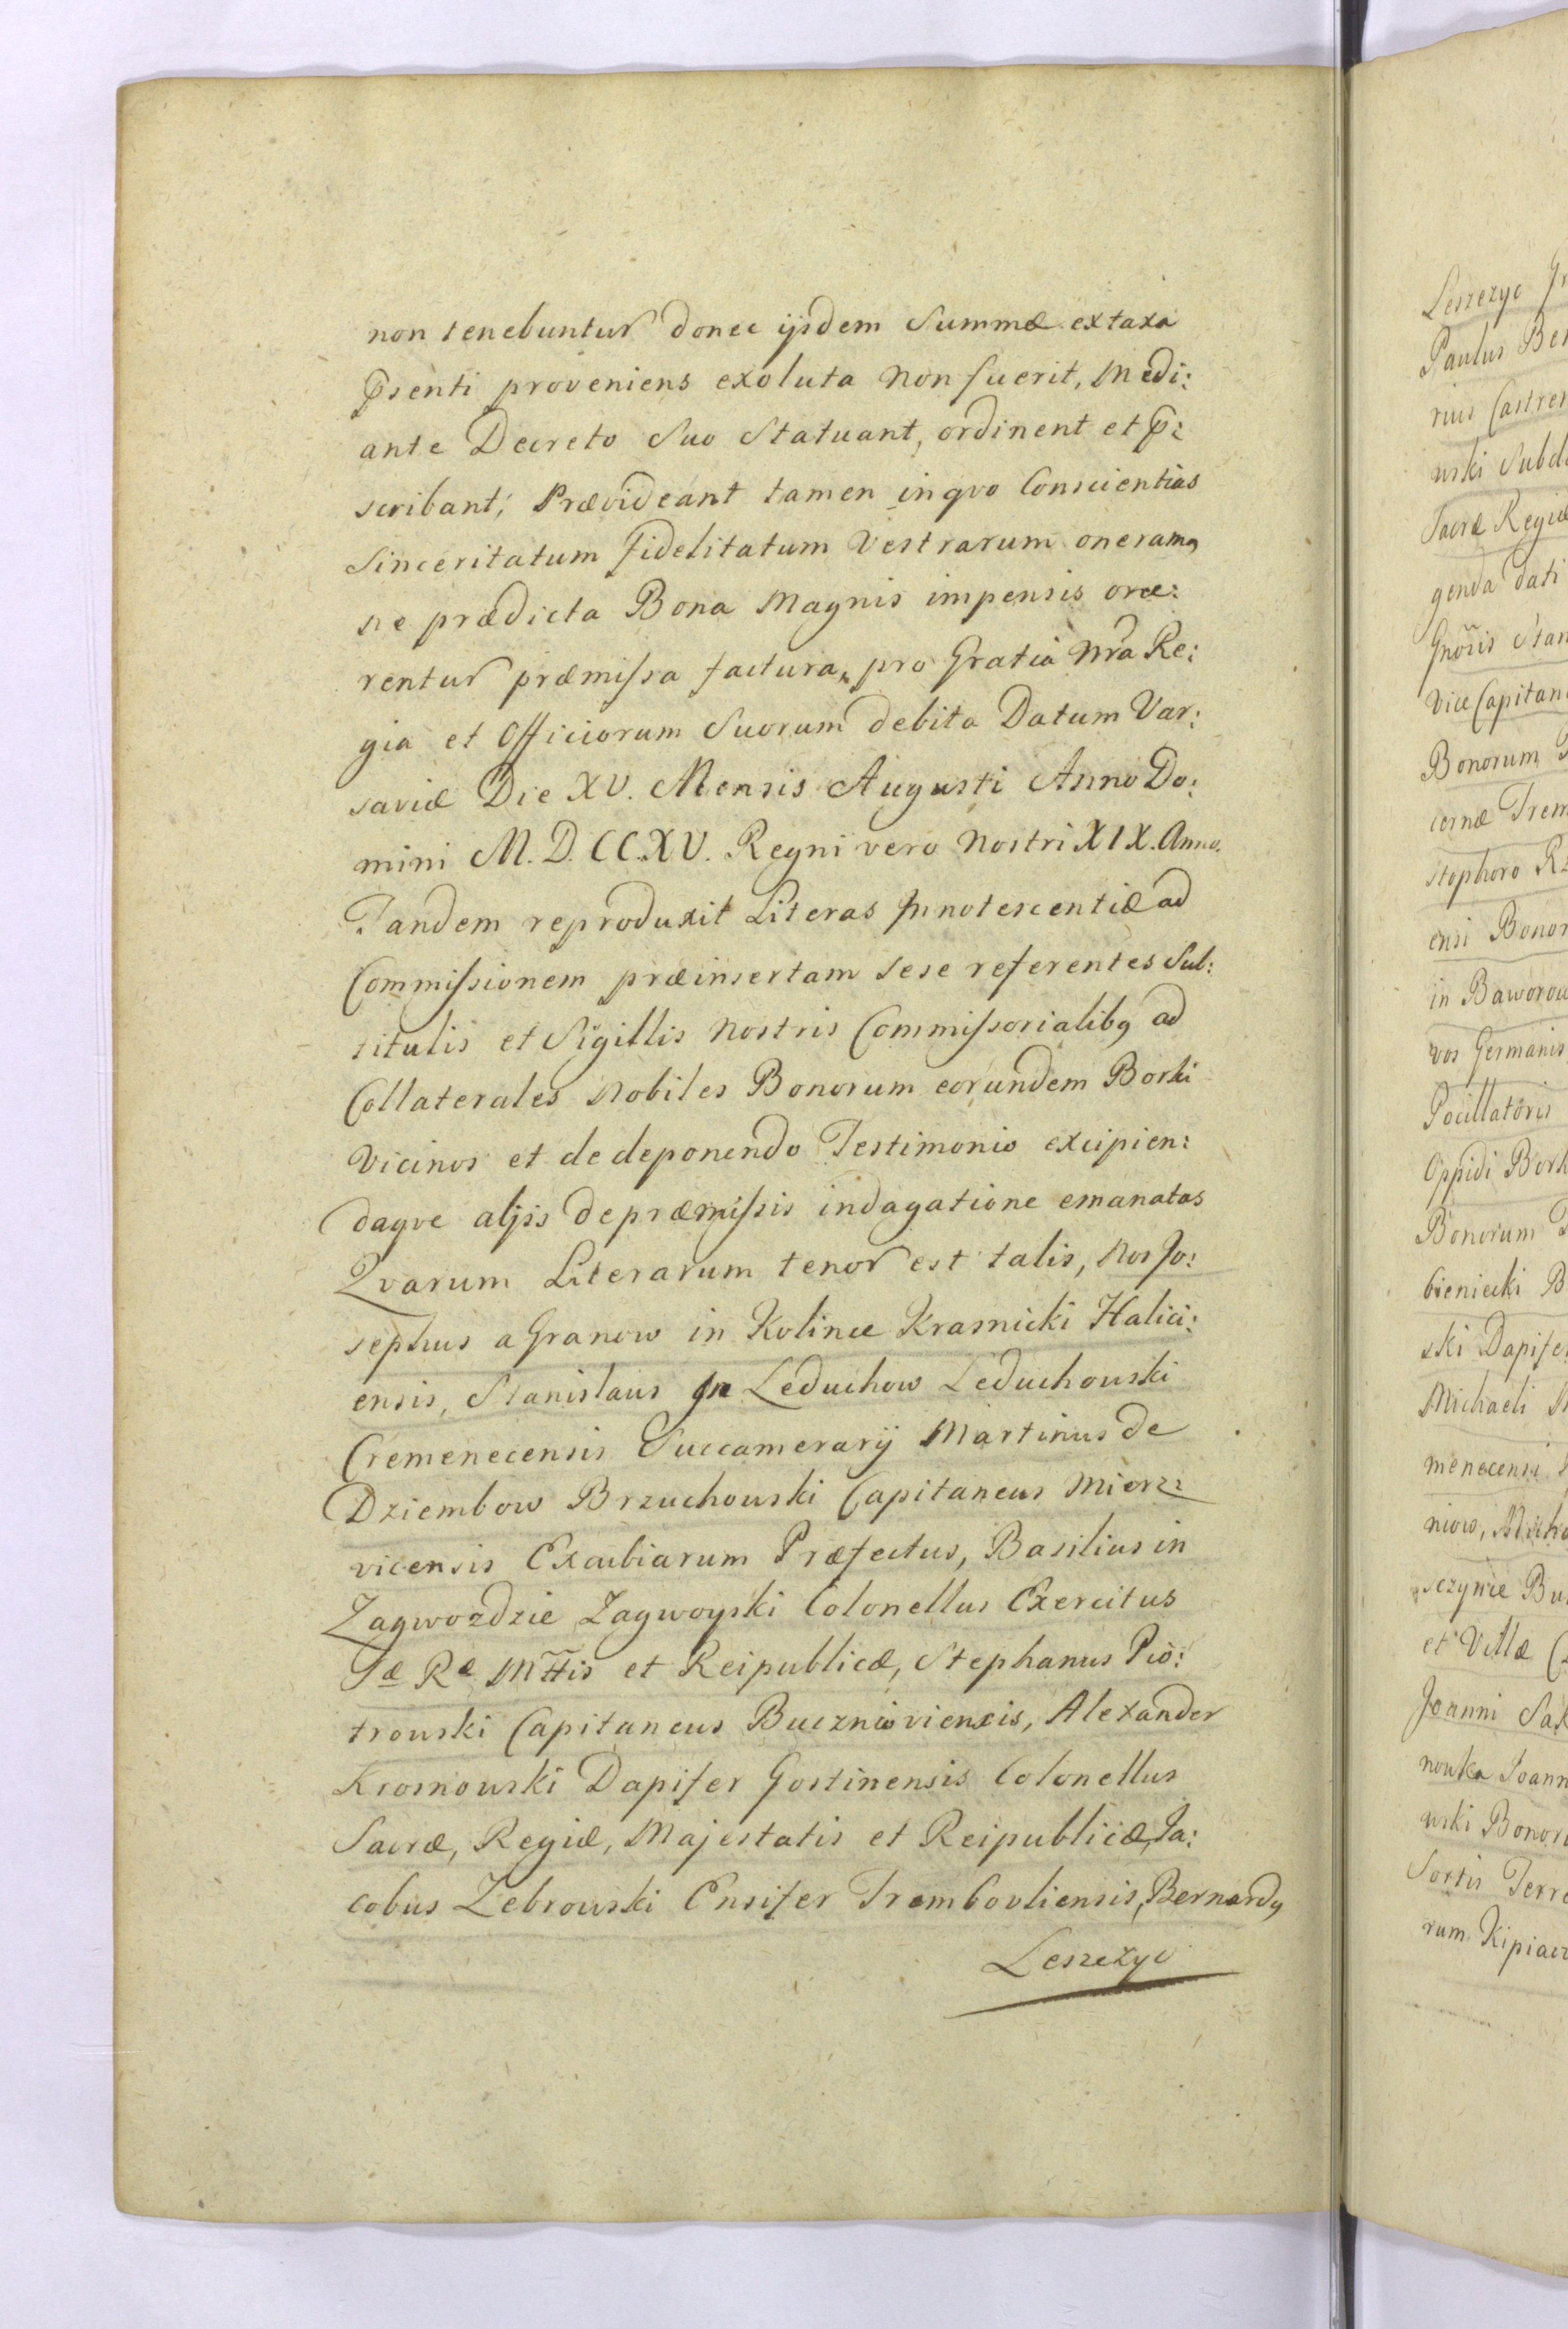 non tenebuntur donec ijsdem Summæ ex taxa
p̄senti proveniens exoluta non fuerit, Medi:
ante Decreto Suo Statuant, ordinent et p̄:
scribant; Prævideant tamen in qvo Conscientias
Sinceritatum fidelitatum Vestrarum oneramꝯ
ne prædicta Bona Magnis impensis one:
rentur præmissa factura, pro Gratia Nr̄a Re:
gia et Officiorum Suorum debito Datum Var:
saviæ Die XV. Mensis Augusti Anno Do:
mini M.D.CC.XV. Regni vero Nostri XIX. Anno.
Tandem reproduxit Literas Innotescentiæ ad
Commissionem præinsertam sese referentes Sub:
titulis et Sigillis Nostris Commissorialibꝯ ad
Collaterales Nobiles Bonorum eorundem Borki
Vicinos et de deponendo Testimonio excipien:
daqve alijs de præmissis indagatione emanatas
Qvarum Literarum tenor est talis, Nos Jo:
sephus a Granow in Kolince Krasnicki Halici:
ensis, Stanislaus In Leduchow Leduchowski
Cremenecensis Succamerarij Martinus de
Dziembow Brzuchowski Capitaneus Mierz:
vicensis Excubiarum Præfectus, Basilius in
Zagwozdzie Zagwoyski Colonellus Exercitus
Sæ Ræ Mttis et Reipublicæ, Stephanus Pio:
trowski Capitaneus Buczniowiensis, Alexander
Krosnowski Dapifer Gostinensis Colonellus
Sacræ, Regiæ, Majestatis et Reipublicæ, Ja:
cobus Zebrowski Ensifer Trembovliensis, Bernardꝯ
Leszczyc
Leszczyc
Paulus
rius Castren
wski Subd
Sacræ Regiæ
genda dati
Gnōris Stan
Vice Capitan
Bonorum
cernæ Trem
stophoro
ensi Bonor
in Baworow
vos Germanis
Pocillatoris
Oppidi Bork
Bonorum
bieniecki B
ski Dapife
Michaeli
menecensi
niow, Micha
sczynie Bu
et Villæ
Joanni Sak
nowka Joann
wski Bonor
Sortis Terr
rum Kipiac